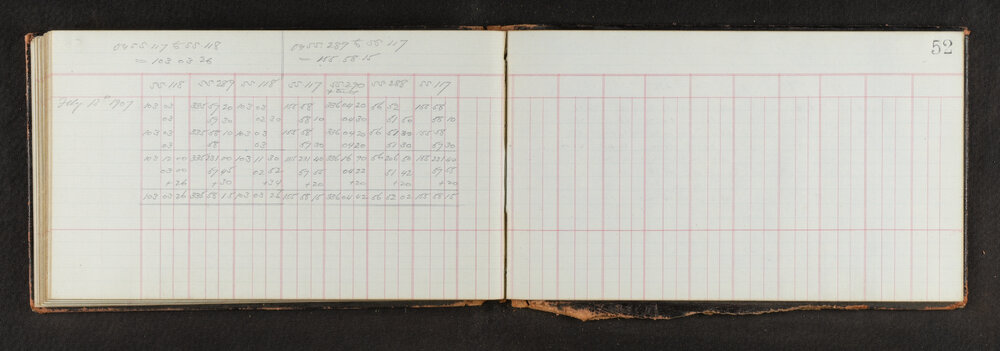 04 55 117 to 55 118 04 55 289 to 55 117
= 103 03 26 = 155 58 15
52
55 118 55 289 55 118 55 117 55 290 55 288 55 117
Feby 12th 1907 103 03 335 57 20 103 03 155 58 336 04 20 56 52 155 58
03 57 30 03 30 58 10 04 30 51 50 58 10
103 03 335 58 10 103 03 155 58 336 04 20 56 51 30 155 58
03 58 03 57 30 04 20 51 30 57 30
103 12 00 335 231 00 103 11 30 155 231 40 336 16 90 56 206 50 155 231 40
03 00 57 45 02 52 57 55 04 22 51 42 57 55
+26 +30 +34 +20 +20 +20 +20
103 03 26 335 58 15 103 03 26 155 58 15 336 04 42 56 52 02 155 58 15